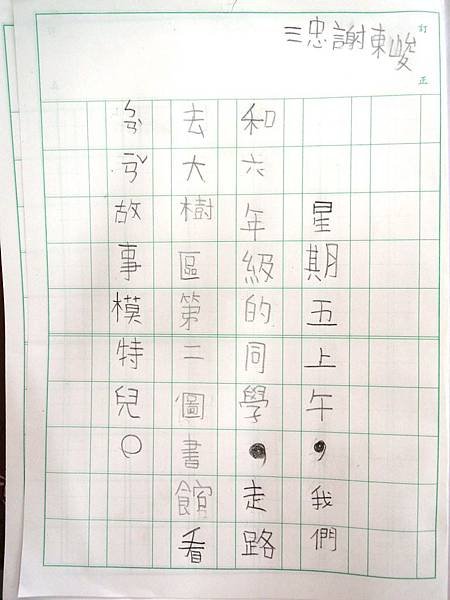 訂正
三忠謝東峻
星期五上午，我們
和六年級的同學，走路
去大樹區第二圖書館看
故事模特兒。